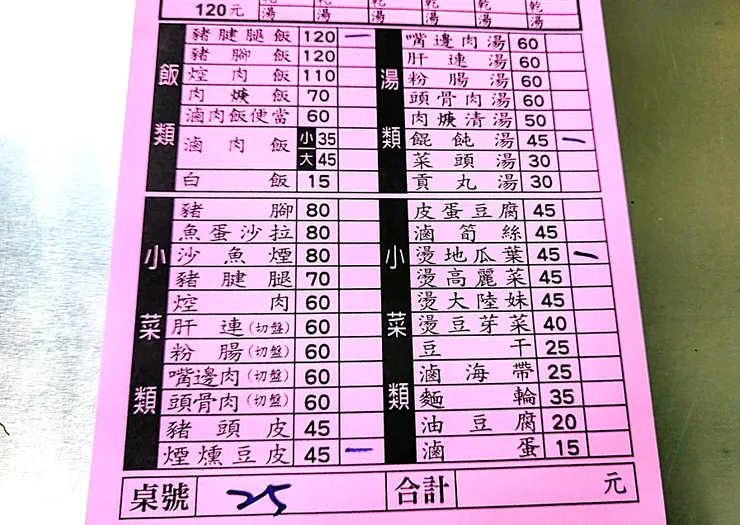 120元 乾湯 乾湯 乾湯 乾湯 乾湯 乾湯
飯類
豬腱腿飯 120 一
豬腳飯 120
焢肉飯 110
肉焿飯 70
滷肉飯便當 60
滷肉飯 小 35
大 45
白飯 15
湯類
嘴邊肉湯 60
肝連湯 60
粉腸湯 60
頭骨肉湯 60
肉焿清湯 50
餛飩湯 45 一
菜頭湯 30
貢丸湯 30
小菜類
豬腳 80
魚蛋沙拉 80
沙魚煙 80
豬腱腿 70
焢肉 60
肝連(切盤) 60
粉腸(切盤) 60
嘴邊肉(切盤) 60
頭骨肉(切盤) 60
豬頭皮 45
煙燻豆皮 45 一
小菜類
皮蛋豆腐 45
滷筍絲 45
燙地瓜葉 45 一
燙高麗菜 45
燙大陸妹 45
燙豆芽菜 40
豆干 25
滷海帶 25
麵輪 35
油豆腐 20
滷蛋 15
桌號 25 合計 元